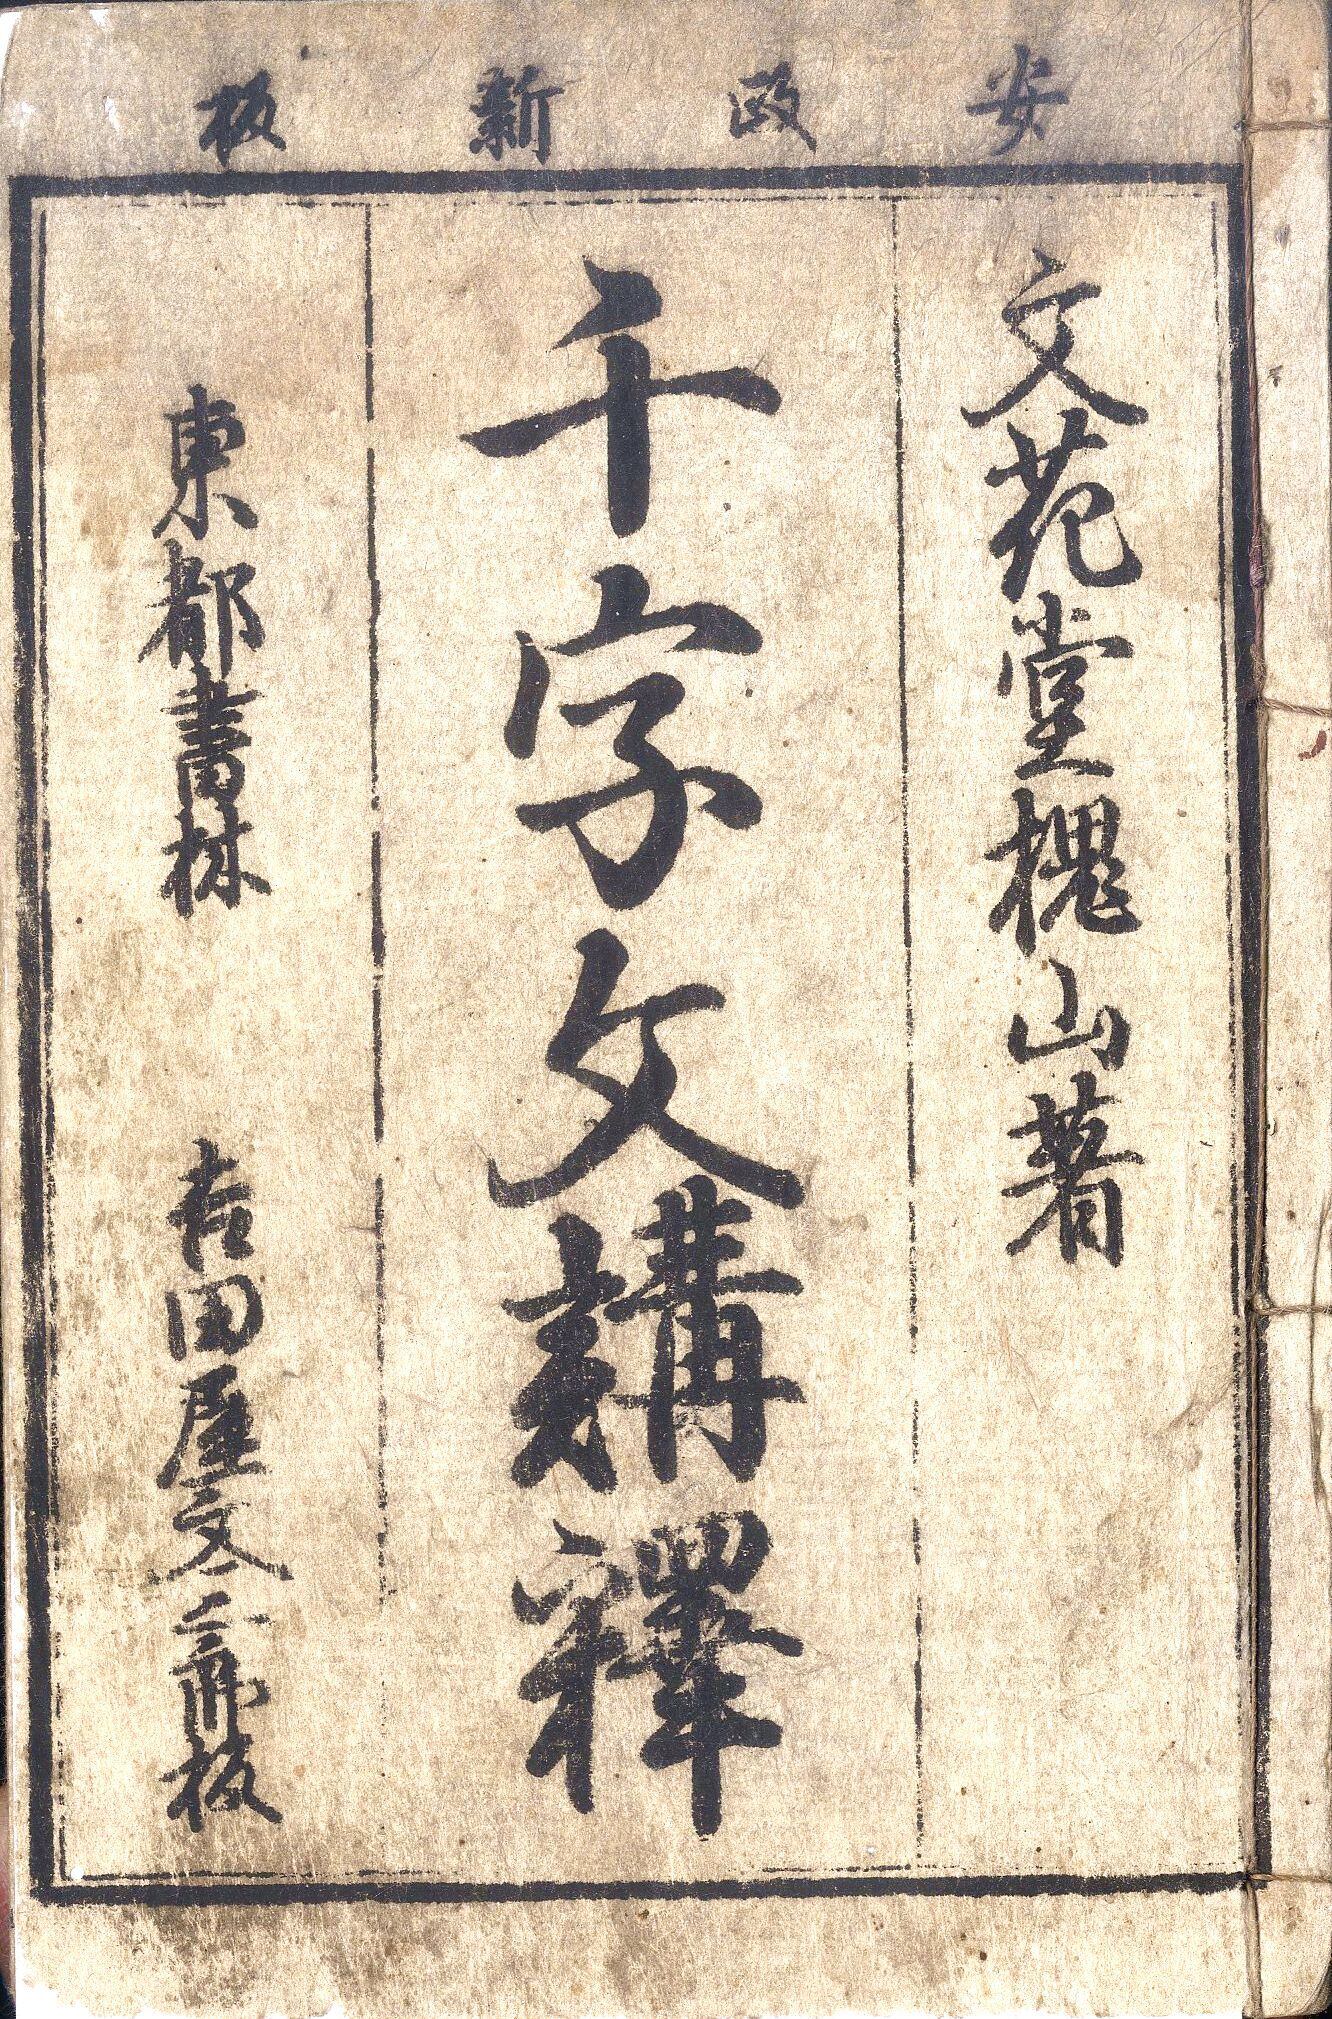 安政新板
文苑堂槐山著
千字文講釋
東都書林 吉田屋文三郎板